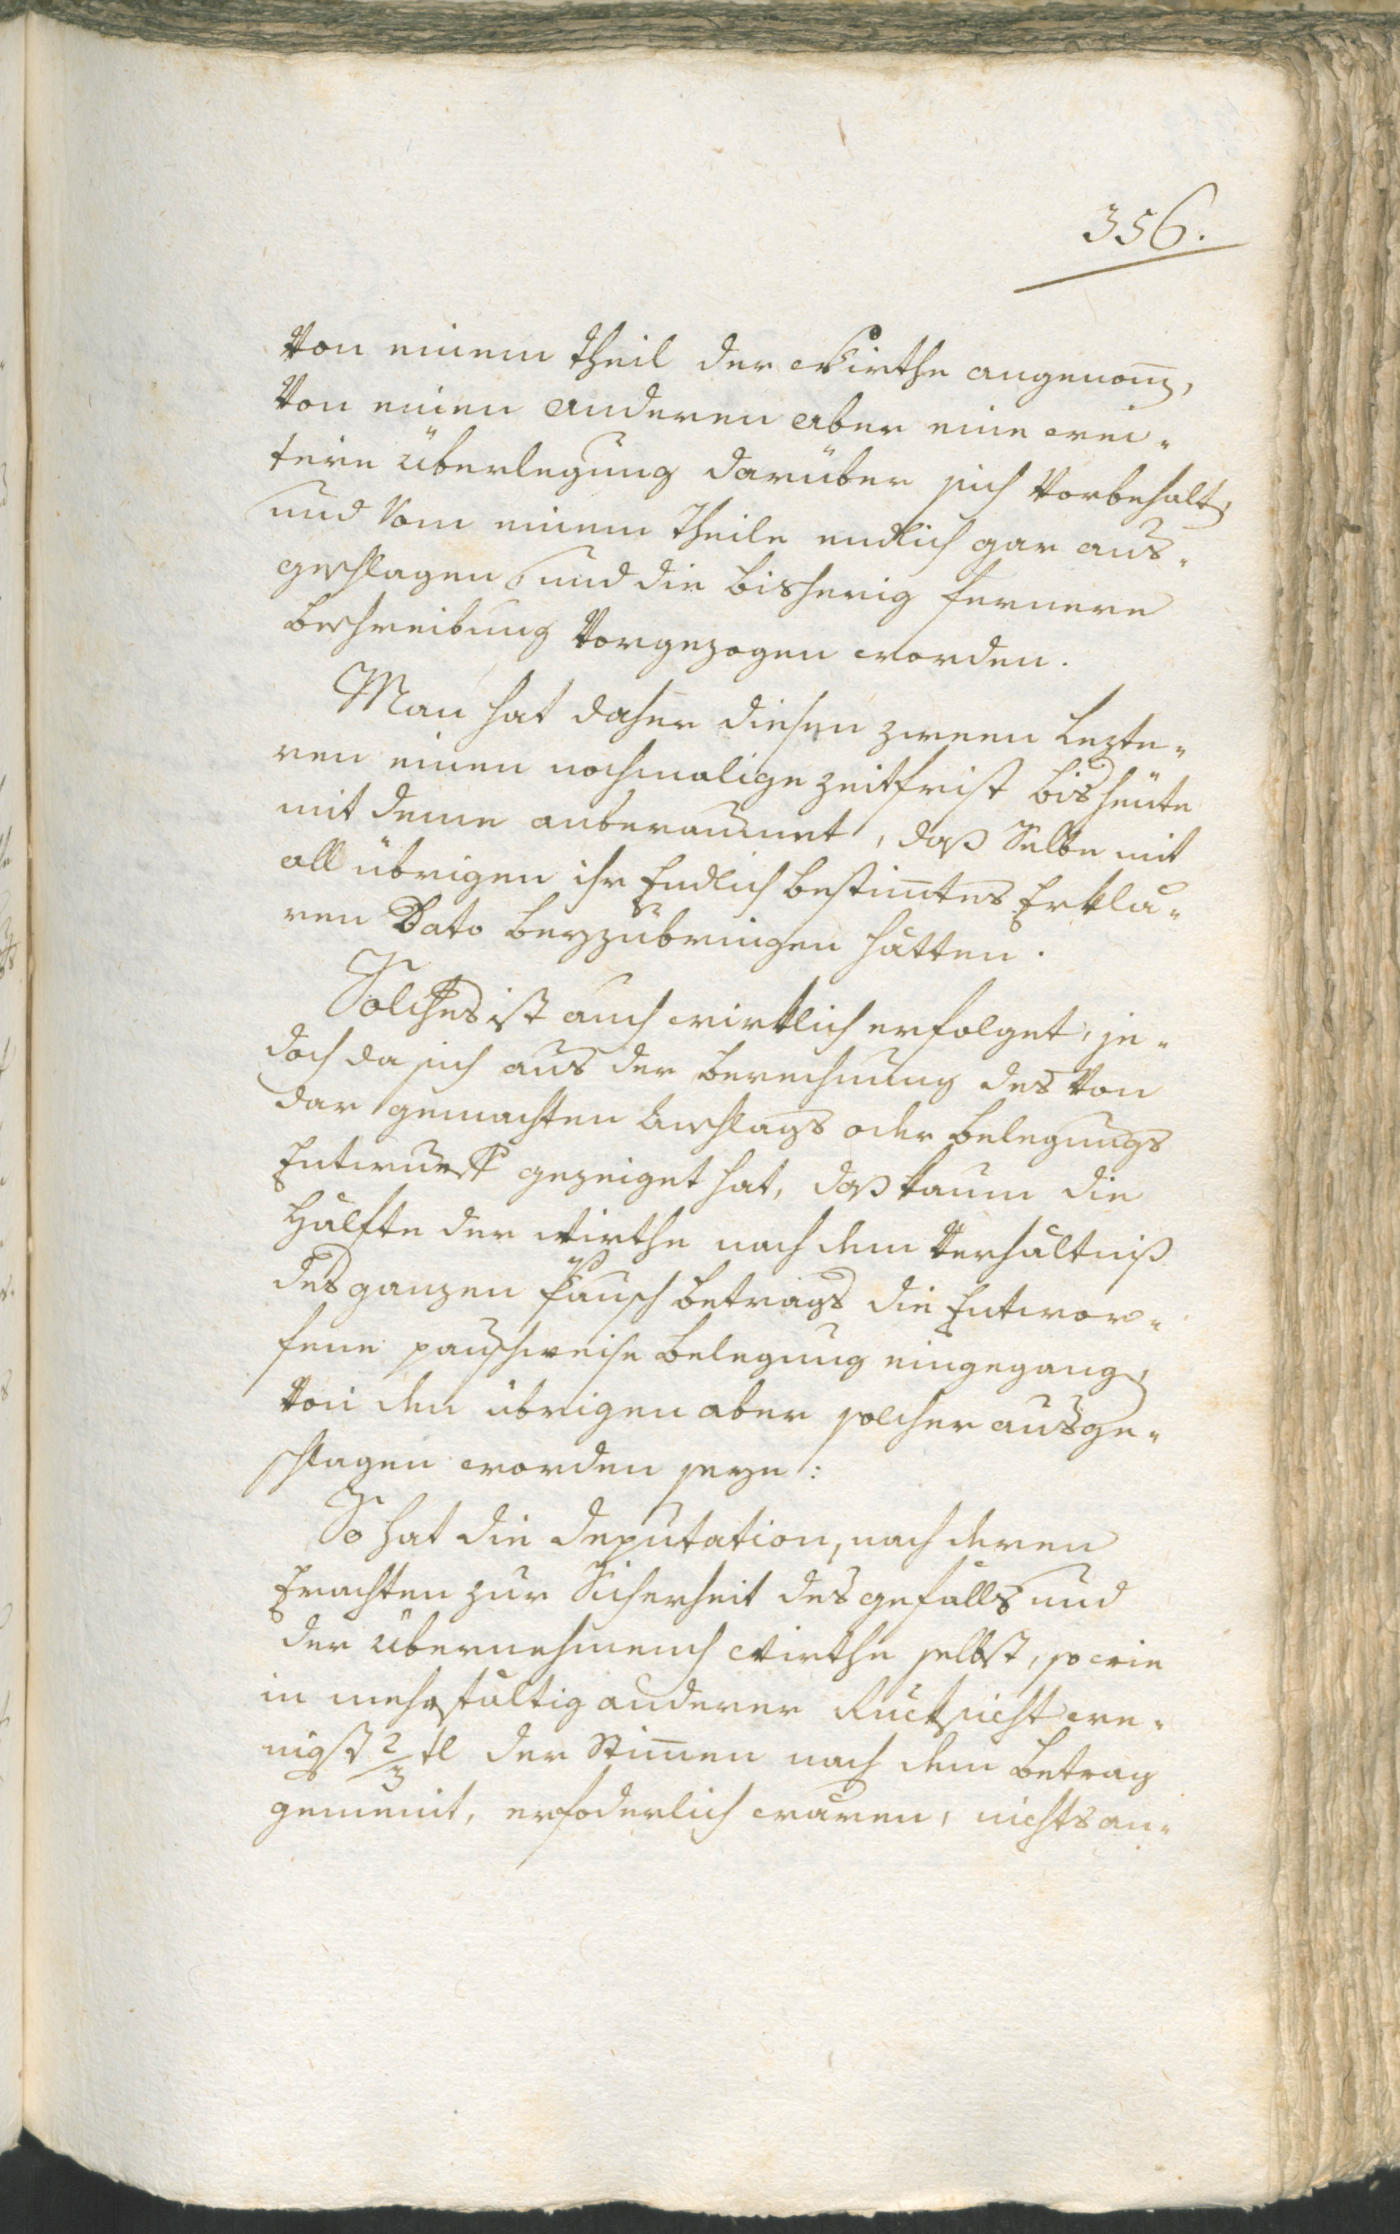 356.
Von einem Theil der Wirthe angenom̄,
Von einen anderen aber eine wei-
tere Überlegung darüber sich Vorbehalt,
und Vom einem Theile endlich gar aus-
geschlagen und die bisherig fernere
Beschreibung Vorgezogen worden.
Man hat daher diesen zween Lezte-
ren einen nochmalige Zeitfrist bis heute
mit deme anberaumet, daß Selbe mit
all übrigen ihr Endlich bestim̄tes Erklä-
ren Dato beyzubringen hätten.
Solches ist auch wirklich erfolget, je-
doch da sich aus der Berechnung des Von
dar gemachten Anschlags oder Belegungs
Entwurfs gezeiget hat, daß kaum die
Hälfte der Wirthe nach dem Verhältniß
des ganzen Pausch betrags die Entwor-
fene pauschweise Belegung eingegang,
Von den übrigen aber solcher ausge-
schlagen worden seye:
So hat die Deputation, nach deren
Erachten zur Sicherheit des gefälls und
der übernehmend Wirthe selbst, so wie
in mehrfältig anderer Rücksicht we-
nigst 2/3 tl der Stim̄en nach dem Betrag
gemeint, erfoderlich wären, nichts an-